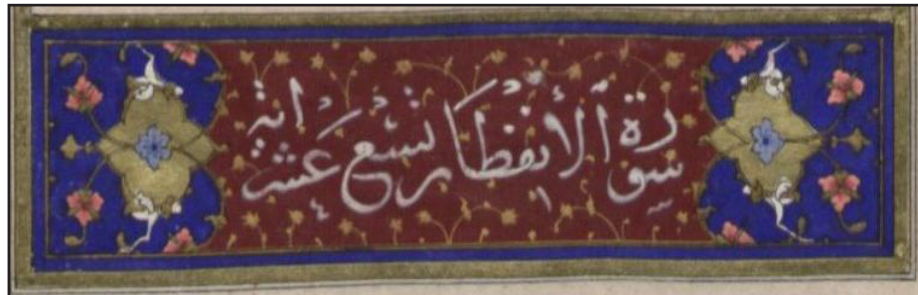 سورة الانفطار تسع عشر اية